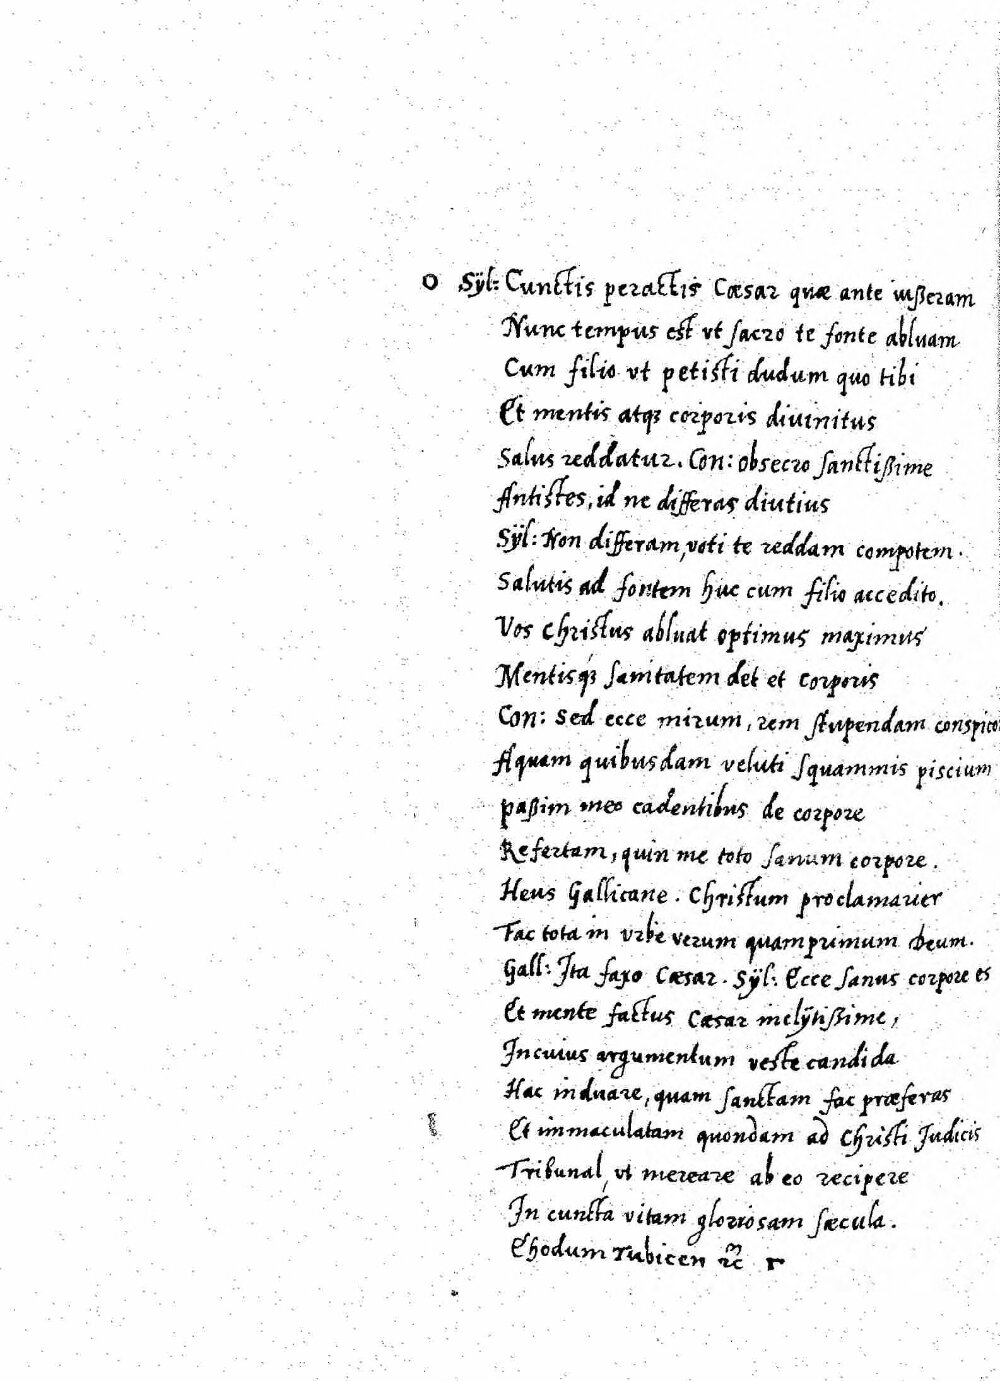 O Sÿl: Cunctis peractis Cæsar quæ ante iußeram
Nunc tempus est vt sacro te fonte abluam
Cum filio vt petisti dudum quo tibi
Et mentis atqꝫ corporis diuinitus
Salus reddatur. Con: obsecro sanctißime
Antistes, id ne differas diutius
Sÿl: Non differam, voti te reddam compotem.
Salutis ad fontem huc cum filio accedito.
Vos Christus abluat optimus maximus
Mentisqꝫ sanitatem det et corporis
Con: Sed ecce mirum, rem stupendam conspico
Aquam quibusdam veluti squammis piscium
paßim meo cadentibus de corpore
Refertam, quin me toto sanum corpore.
Heus Gallicane. Christum proclamarier
Fac tota in vrbe verum quamprimum Deum.
Gall: Ita faxo Cæsar. Sÿl: Ecce sanus corpore es
Et mente factus Cæsar inclÿtißime,
In cuius argumentum veste candida
Hac induare, quam sanctam fac præferas
Et immaculatam quondam ad Christi Judicis
Tribunal, vt mereare ab eo recipere
In cuncta vitam gloriosam sæcula.
Ehodum Tubicen